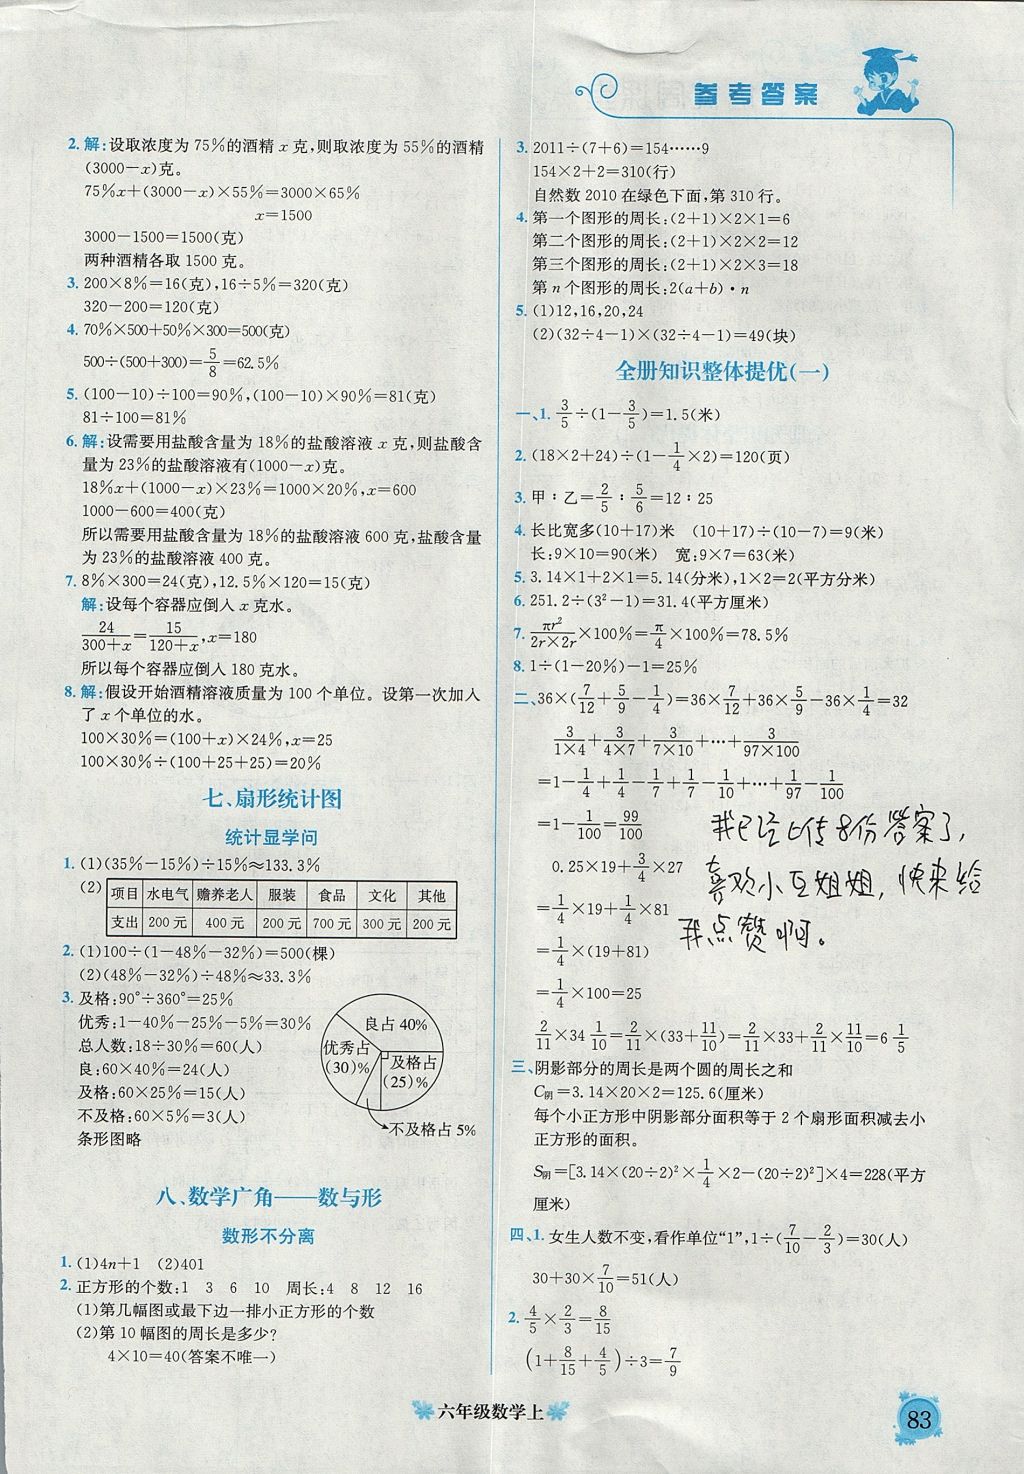 参考答案
2. 解:设取浓度为75%的酒精x克,则取浓度为55%的酒精
(3000-x)克。
75%x+(3000-x)×55%=3000×65%
x=1500
3000-1500=1500(克)
两种酒精各取1500克。
3. 200×8%=16(克),16÷5%=320(克)
320-200=120(克)
4. 70%×500+50%×300=500(克)
500÷(500+300)=5/8=62.5%
5. (100-10)÷100=90%,(100-10)×90%=81(克)
81÷100=81%
6. 解:设需要用盐酸含量为18%的盐酸溶液x克,则盐酸含
量为23%的盐酸溶液有(1000-x)克。
18%x+(1000-x)×23%=1000×20%,x=600
1000-600=400(克)
所以需要用盐酸含量为18%的盐酸溶液600克,盐酸含量
为23%的盐酸溶液400克。
7. 8%×300=24(克),12.5%×120=15(克)
解:设每个容器应倒入x克水。
24/(300+x)=15/(120+x),x=180
所以每个容器应倒入180克水。
8. 解:假设开始酒精溶液质量为100个单位。设第一次加入
了x个单位的水。
100×30%=(100+x)×24%,x=25
100×30%÷(100+25+25)=20%
七、扇形统计图
统计显学问
1. (1)(35%-15%)÷15%≈133.3%
(2)
项目 水电气 赡养老人 服装 食品 文化 其他
支出 200元 400元 200元 700元 300元 200元
2. (1)100÷(1-48%-32%)=500(棵)
(2)(48%-32%)÷48%≈33.3%
3. 及格:90°÷360°=25%
优秀:1-40%-25%-5%=30%
总人数:18÷30%=60(人)
良:60×40%=24(人)
及格:60×25%=15(人)
不及格:60×5%=3(人)
条形图略
良占40%
优秀占
(30)%
及格占
(25)%
不及格占5%
八、数学广角——数与形
数形不分离
1. (1)4n+1 (2)401
2. 正方形的个数:1 3 6 10 周长:4 8 12 16
(1)第几幅图或最下边一排小正方形的个数
(2)第10幅图的周长是多少?
4×10=40(答案不唯一)
3. 2011÷(7+6)=154……9
154×2+2=310(行)
自然数2010在绿色下面,第310行。
4. 第一个图形的周长:(2+1)×2×1=6
第二个图形的周长:(2+1)×2×2=12
第三个图形的周长:(2+1)×2×3=18
第n个图形的周长:2(a+b)·n
5. (1)12,16,20,24
(2)(32÷4-1)×(32÷4-1)=49(块)
全册知识整体提优(一)
一、1. 3/5÷(1-3/5)=1.5(米)
2. (18×2+24)÷(1-1/4×2)=120(页)
3. 甲:乙=2/5:5/6=12:25
4. 长比宽多(10+17)米 (10+17)÷(10-7)=9(米)
长:9×10=90(米) 宽:9×7=63(米)
5. 3.14×1+2×1=5.14(分米),1×2=2(平方分米)
6. 251.2÷(3²-1)=31.4(平方厘米)
7. πr²/(2r×2r)×100%=π/4×100%=78.5%
8. 1÷(1-20%)-1=25%
二、36×(7/12+5/9-1/4)=36×7/12+36×5/9-36×1/4=32
3/(1×4)+3/(4×7)+3/(7×10)+…+3/(97×100)
=1-1/4+1/4-1/7+1/7-1/10+…+1/97-1/100
=1-1/100=99/100
0.25×19+3/4×27
=1/4×19+1/4×81
=1/4×(19+81)
=1/4×100=25
2/11×34 1/10=2/11×(33+11/10)=2/11×33+2/11×11/10=6 1/5
我已经上传8份答案了,
喜欢小互姐姐,快来给
我点赞啊。
三、阴影部分的周长是两个圆的周长之和
C阴=3.14×20×2=125.6(厘米)
每个小正方形中阴影部分面积等于2个扇形面积减去小
正方形的面积。
S阴=[3.14×(20÷2)²×1/4×2-(20÷2)²]×4=228(平方
厘米)
四、1. 女生人数不变,看作单位“1”,1÷(7/10-2/3)=30(人)
30+30×7/10=51(人)
2. 4/5×2/3=8/15
(1+8/15+4/5)÷3=7/9
六年级数学上
83